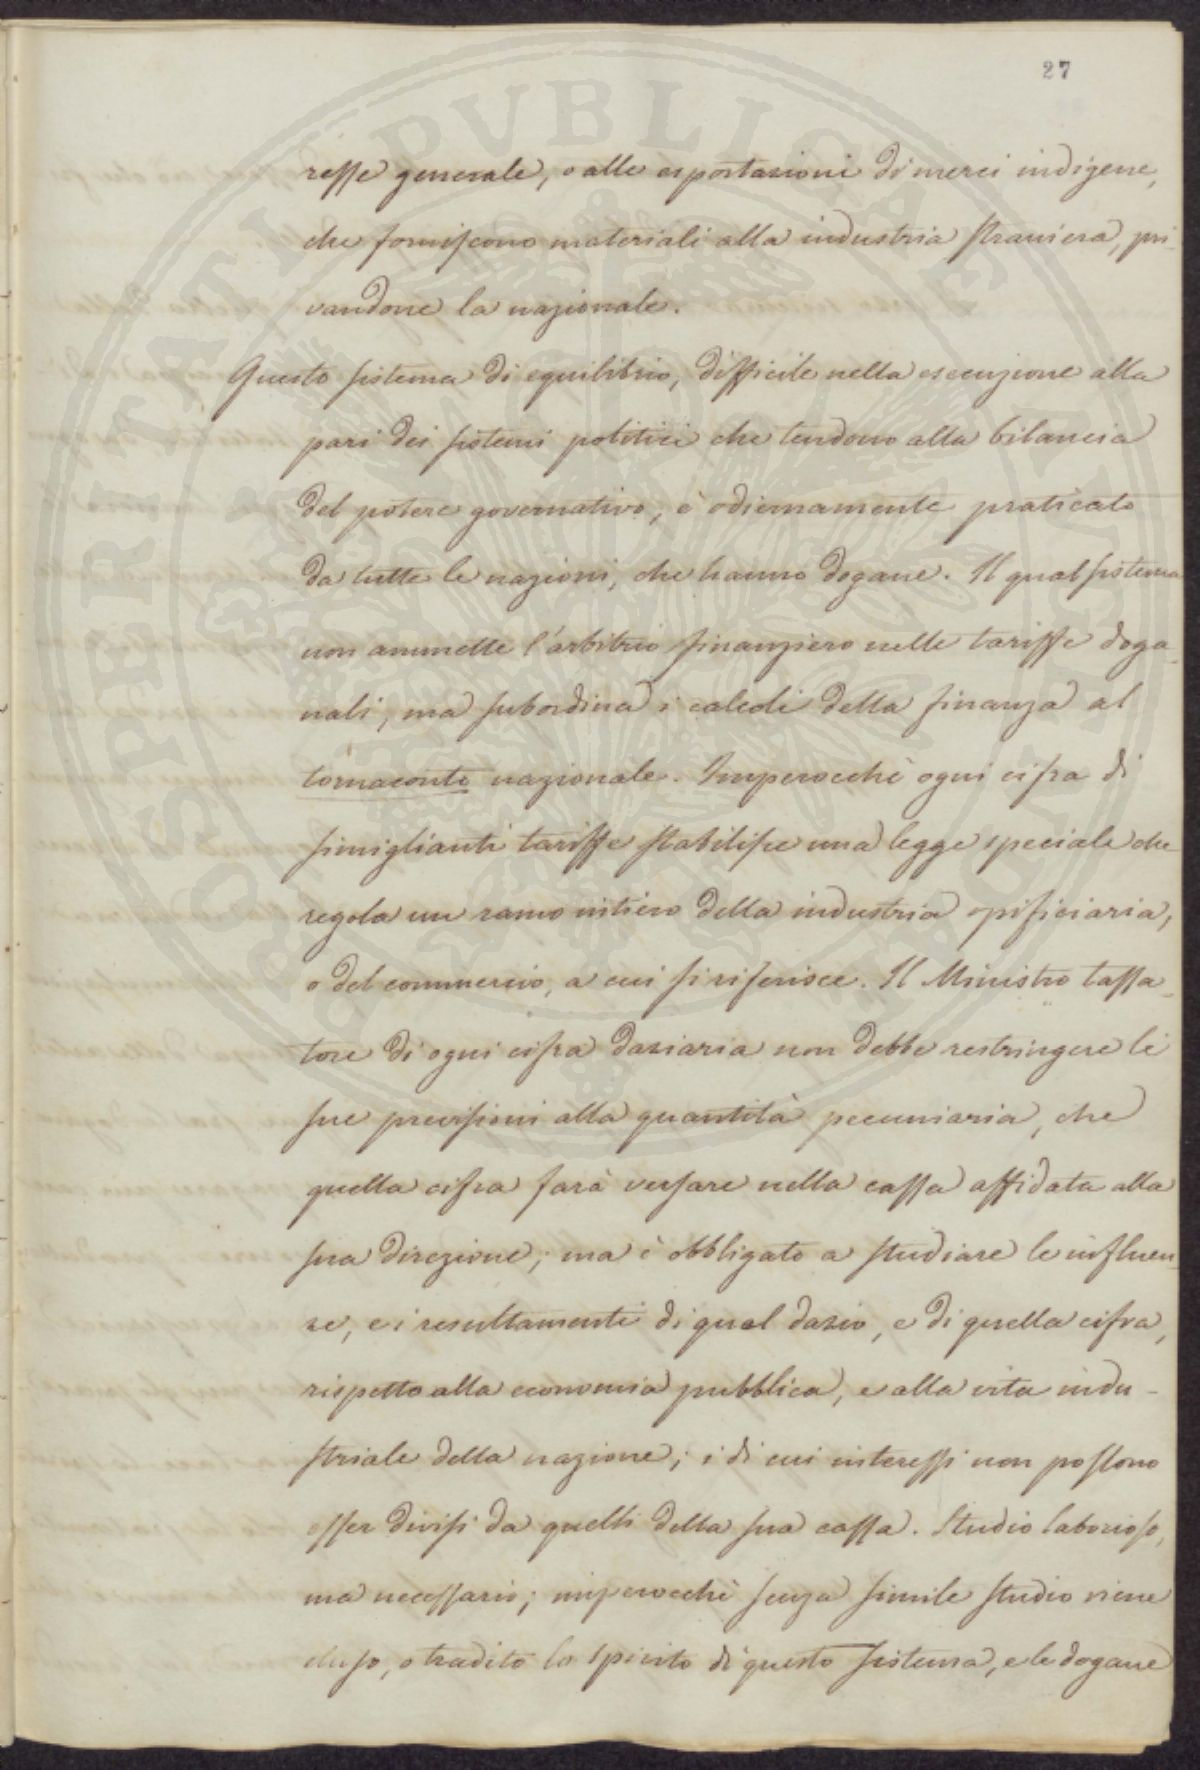 27
resse generale, o alle esportazioni di merci indigene,
che forniscono materiali alla industria straniera, pri-
vandone la nazionale.
Questo sistema di equilibrio, difficile nella esecuzione alla
pari dei sistemi politici che tendono alla bilancia
del potere governativo, è odiernamente praticato
da tutte le nazioni, che hanno dogane. Il qual sistema
non ammette l'arbitrio finanziero nelle tariffe doga-
nali, ma subordina i calcoli della finanza al
tornaconto nazionale. Imperocchè ogni cifra di
simiglianti tariffe stabilisce una legge speciale che
regola un ramo intiero della industria opificiaria,
o del commercio, a cui si riferisce. Il Ministro tassa-
tore di ogni cifra daziaria non debbe restringere le
sue previsioni alla quantità pecuniaria, che
quella cifra farà versare nella cassa affidata alla
sua direzione; ma è obbligato a studiare le influen-
ze, e i resultamenti di quel dazio, e di quella cifra,
rispetto alla economia pubblica, e alla vita indu-
striale della nazione; i di cui interessi non possono
esser divisi da quelli della sua cassa. Studio laborioso,
ma necessario; imperocchè senza simile studio viene
eluso, o tradito lo spirito di questo sistema, e le dogane
PROSPERITATI PUBLICAE AUGENDAE